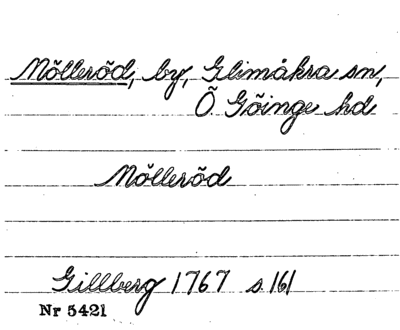 Mölleröd, by, Glimåkra sn,
Ö. Göinge hd
Mölleröd
Gillberg 1767 s. 161
Nr 5421